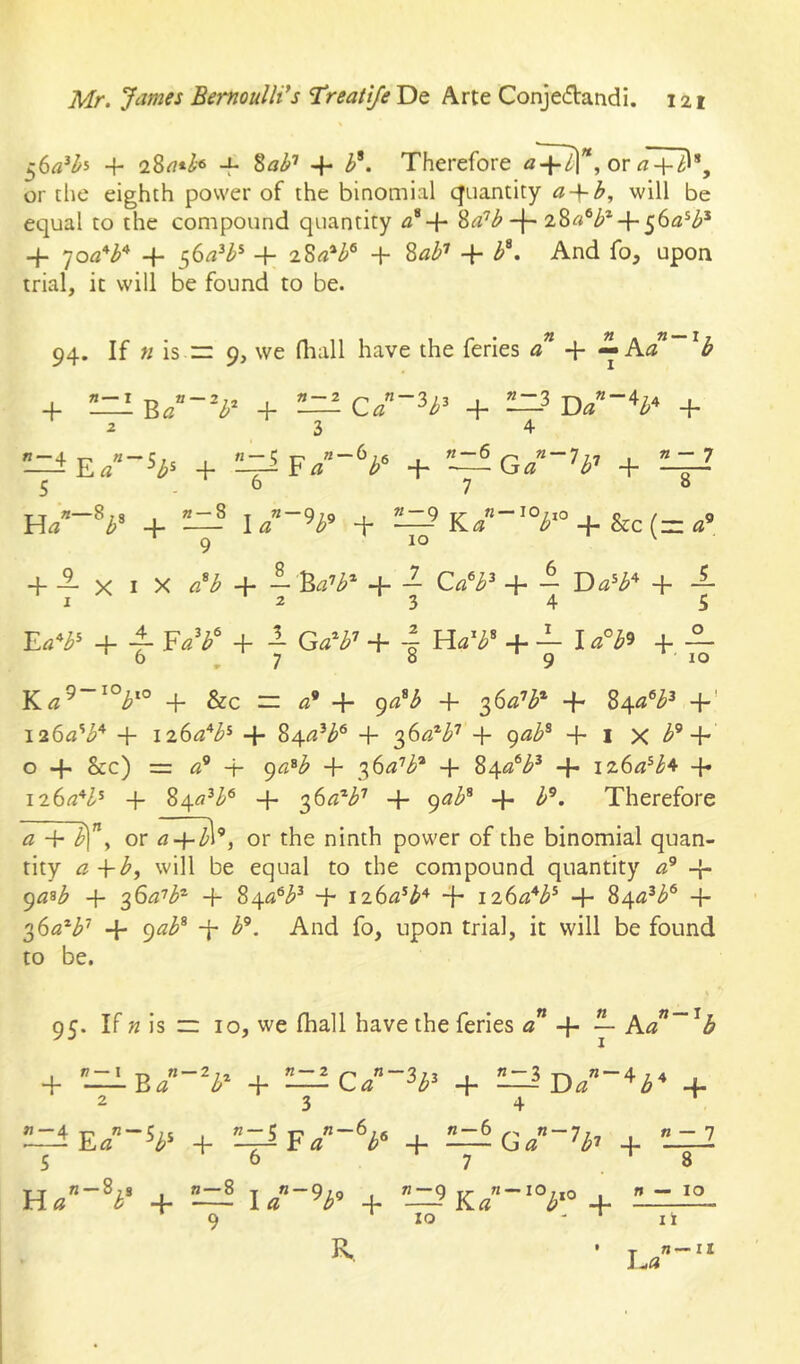 Mr. James Bernoulli's Treatiſe De Arte Conjectandi. 121
56a³b⁵ + 28a²b⁶ + 8ab⁷ + b⁸. Therefore a+b|ⁿ, or a+b|⁸,
or the eighth power of the binomial quantity a+b, will be
equal to the compound quantity a⁸ + 8a⁷b + 28a⁶b² + 56a⁵b³
+ 70a⁴b⁴ + 56a³b⁵ + 28a²b⁶ + 8ab⁷ + b⁸. And ſo, upon
trial, it will be found to be.
94. If n is = 9, we ſhall have the ſeries aⁿ + n/1 Aaⁿ⁻¹b
+ n−1/2 Baⁿ⁻²b² + n−2/3 Caⁿ⁻³b³ + n−3/4 Daⁿ⁻⁴b⁴ +
n−4/5 Eaⁿ⁻⁵b⁵ + n−5/6 Faⁿ⁻⁶b⁶ + n−6/7 Gaⁿ⁻⁷b⁷ + n−7/8
Haⁿ⁻⁸b⁸ + n−8/9 Iaⁿ⁻⁹b⁹ + n−9/10 Kaⁿ⁻¹⁰b¹⁰ + &c (= a⁹
+ 9/1 × 1 × a⁸b + 8/2 Ba⁷b² + 7/3 Ca⁶b³ + 6/4 Da⁵b⁴ + 5/5
Ea⁴b⁵ + 4/6 Fa³b⁶ + 3/7 Ga²b⁷ + 2/8 Ha¹b⁸ + 1/9 Ia⁰b⁹ + 0/10
Ka⁹⁻¹⁰b¹⁰ + &c = a⁹ + 9a⁸b + 36a⁷b² + 84a⁶b³ +
126a⁵b⁴ + 126a⁴b⁵ + 84a³b⁶ + 36a²b⁷ + 9ab⁸ + 1 × b⁹ +
0 + &c) = a⁹ + 9a⁸b + 36a⁷b² + 84a⁶b³ + 126a⁵b⁴ +
126a⁴b⁵ + 84a³b⁶ + 36a²b⁷ + 9ab⁸ + b⁹. Therefore
a + b|ⁿ, or a+b|⁹, or the ninth power of the binomial quan-
tity a + b, will be equal to the compound quantity a⁹ +
9a⁸b + 36a⁷b² + 84a⁶b³ + 126a⁵b⁴ + 126a⁴b⁵ + 84a³b⁶ +
36a²b⁷ + 9ab⁸ + b⁹. And ſo, upon trial, it will be found
to be.
95. If n is = 10, we ſhall have the ſeries aⁿ + n/1 Aaⁿ⁻¹b
+ n−1/2 Baⁿ⁻²b² + n−2/3 Caⁿ⁻³b³ + n−3/4 Daⁿ⁻⁴b⁴ +
n−4/5 Eaⁿ⁻⁵b⁵ + n−5/6 Faⁿ⁻⁶b⁶ + n−6/7 Gaⁿ⁻⁷b⁷ + n−7/8
Haⁿ⁻⁸b⁸ + n−8/9 Iaⁿ⁻⁹b⁹ + n−9/10 Kaⁿ⁻¹⁰b¹⁰ + n−10/11
R Laⁿ⁻¹¹